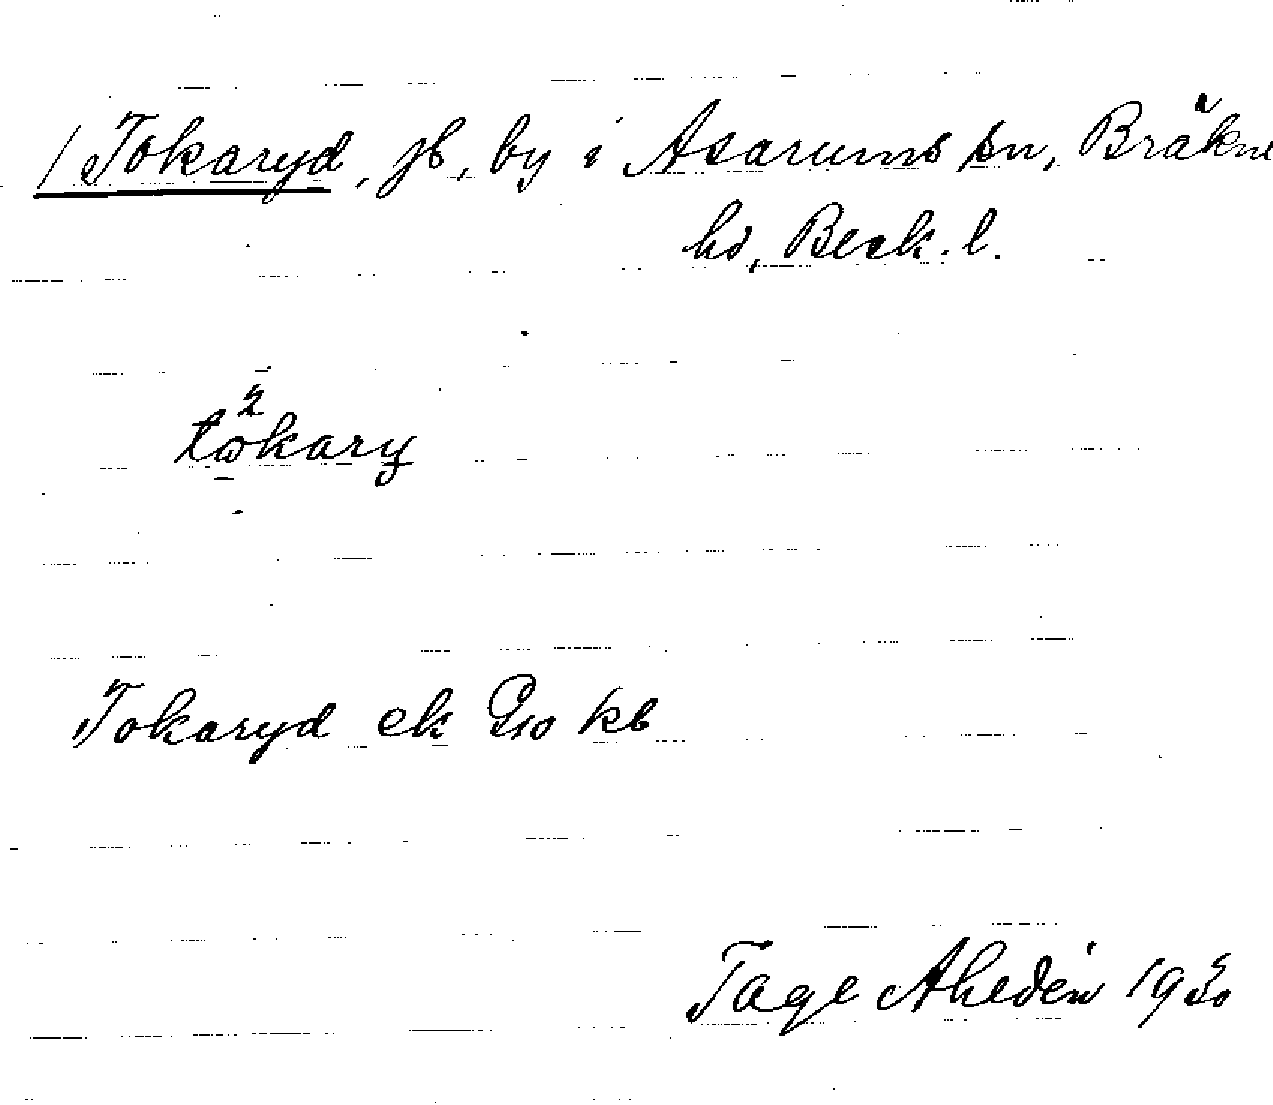 1 Tokaryd, jb, by i Asarums sn, Bräkne
hd, Bleck. l.
tωkary
Tokaryd ek Gso kb
Tage Ahldén 1930